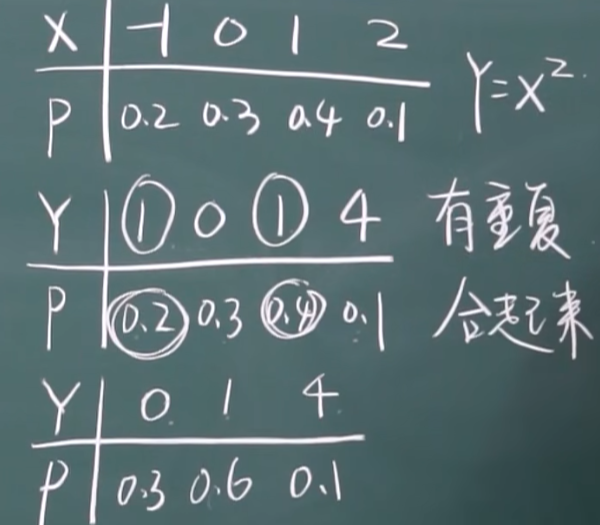 X -1 0 1 2
P 0.2 0.3 0.4 0.1
Y=X².
Y 1 0 1 4
P 0.2 0.3 0.4 0.1
有重复
合起来
Y 0 1 4
P 0.3 0.6 0.1